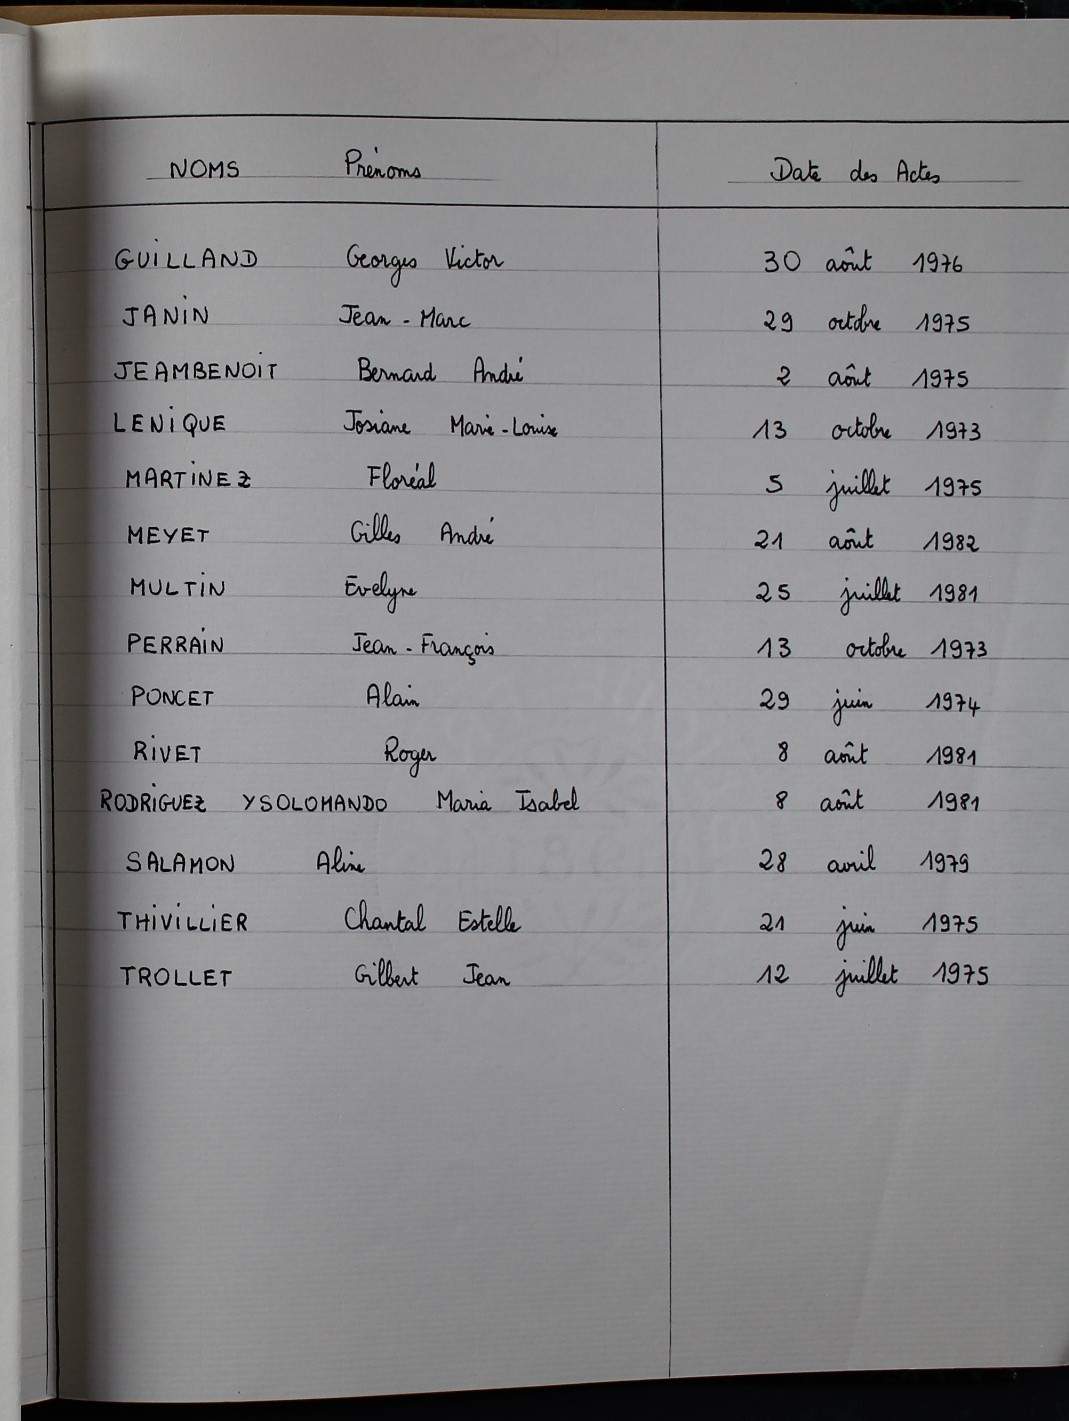 NOMS Prénoms Date des Actes
GUILLAND Georges Victor 30 août 1976
JANIN Jean-Marc 29 octobre 1975
JEAMBENOIT Bernard André 2 août 1975
LENIQUE Josiane Marie-Louise 13 octobre 1973
MARTINEZ Floréal 5 juillet 1975
MEYET Gilles André 21 août 1982
MULTIN Evelyne 25 juillet 1981
PERRAIN Jean-François 13 octobre 1973
PONCET Alain 29 juin 1974
RIVET Roger 8 août 1981
RODRIGUEZ YSOLOMANDO Maria Isabel 8 août 1981
SALAMON Aline 28 avril 1979
THIVILLIER Chantal Estelle 21 juin 1975
TROLLET Gilbert Jean 12 juillet 1975